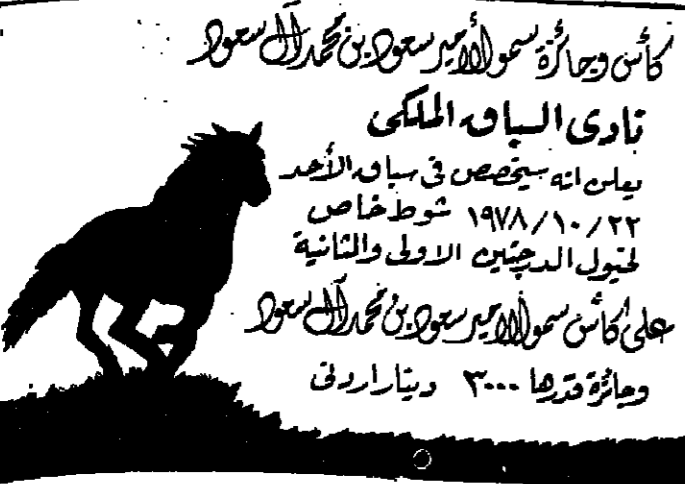 كأس وجائزة سمو الأمير سعود بن محمد آل سعود
نادى السباق الملكى
يعلن انه سيخصص في سباق الأحد
١٩٧٨/١٠/٢٢ شوط خاص
لخيول الدرجتين الاولى والثانية
على كأس سمو الامير سعود بن محمد آل سعود
وجائزة قدرها ٣٠٠٠ دينار اردنى